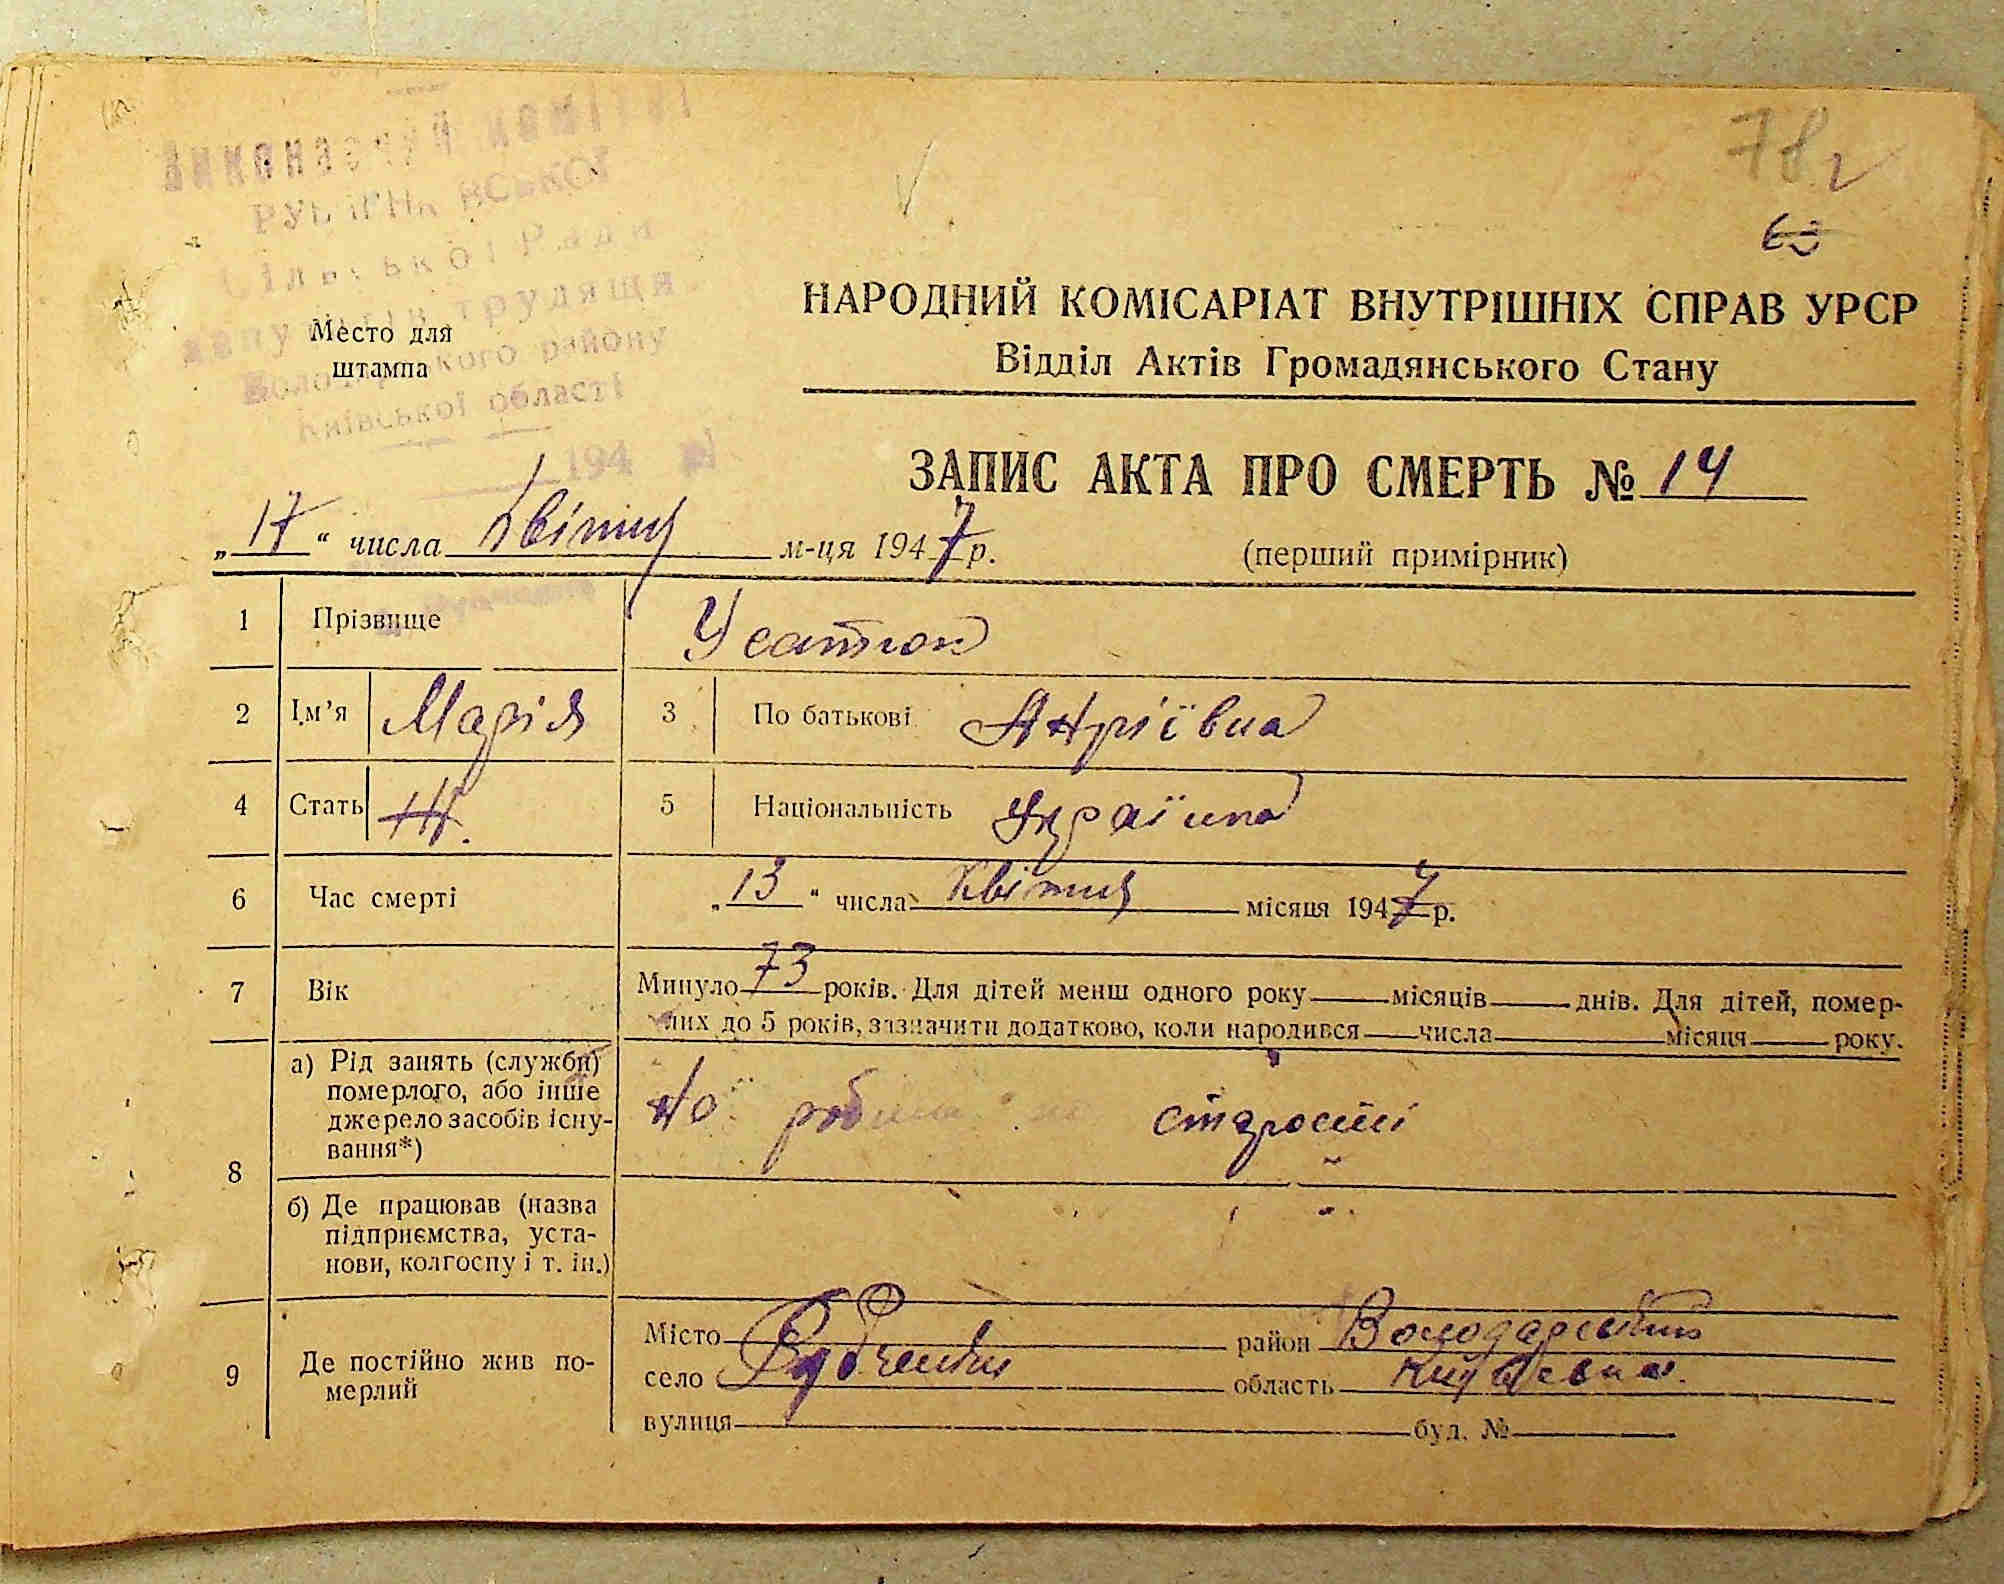 78
63
Виконавчий комітет
Сільської Ради
трудящи
району
Київської області
194
Место для
штампа
НАРОДНИЙ КОМІСАРІАТ ВНУТРІШНІХ СПРАВ УРСР
Відділ Актів Громадянського Стану
ЗАПИС АКТА ПРО СМЕРТЬ № 14
„17“ числа Квітня м-ця 1947 р.
(перший примірник)
1 Прізвище Усатюк
2 Ім'я Марія 3 По батькові Анріївна
4 Стать Ж. 5 Національність Україна
6 Час смерті „13“ числа Квітня місяця 1947 р.
7 Вік Минуло 73 років. Для дітей менш одного року місяців днів. Для дітей, помер-
лих до 5 років, зазначити додатково, коли народився числа місяця року.
8 а) Рід занять (служби)
померлого, або інше
джерело засобів існу-
вання*)
старості
б) Де працював (назва
підприємства, уста-
нови, колгоспу і т. ін.)
9 Де постійно жив по-
мерлий
Місто район Володарський
село область
вулиця буд. №